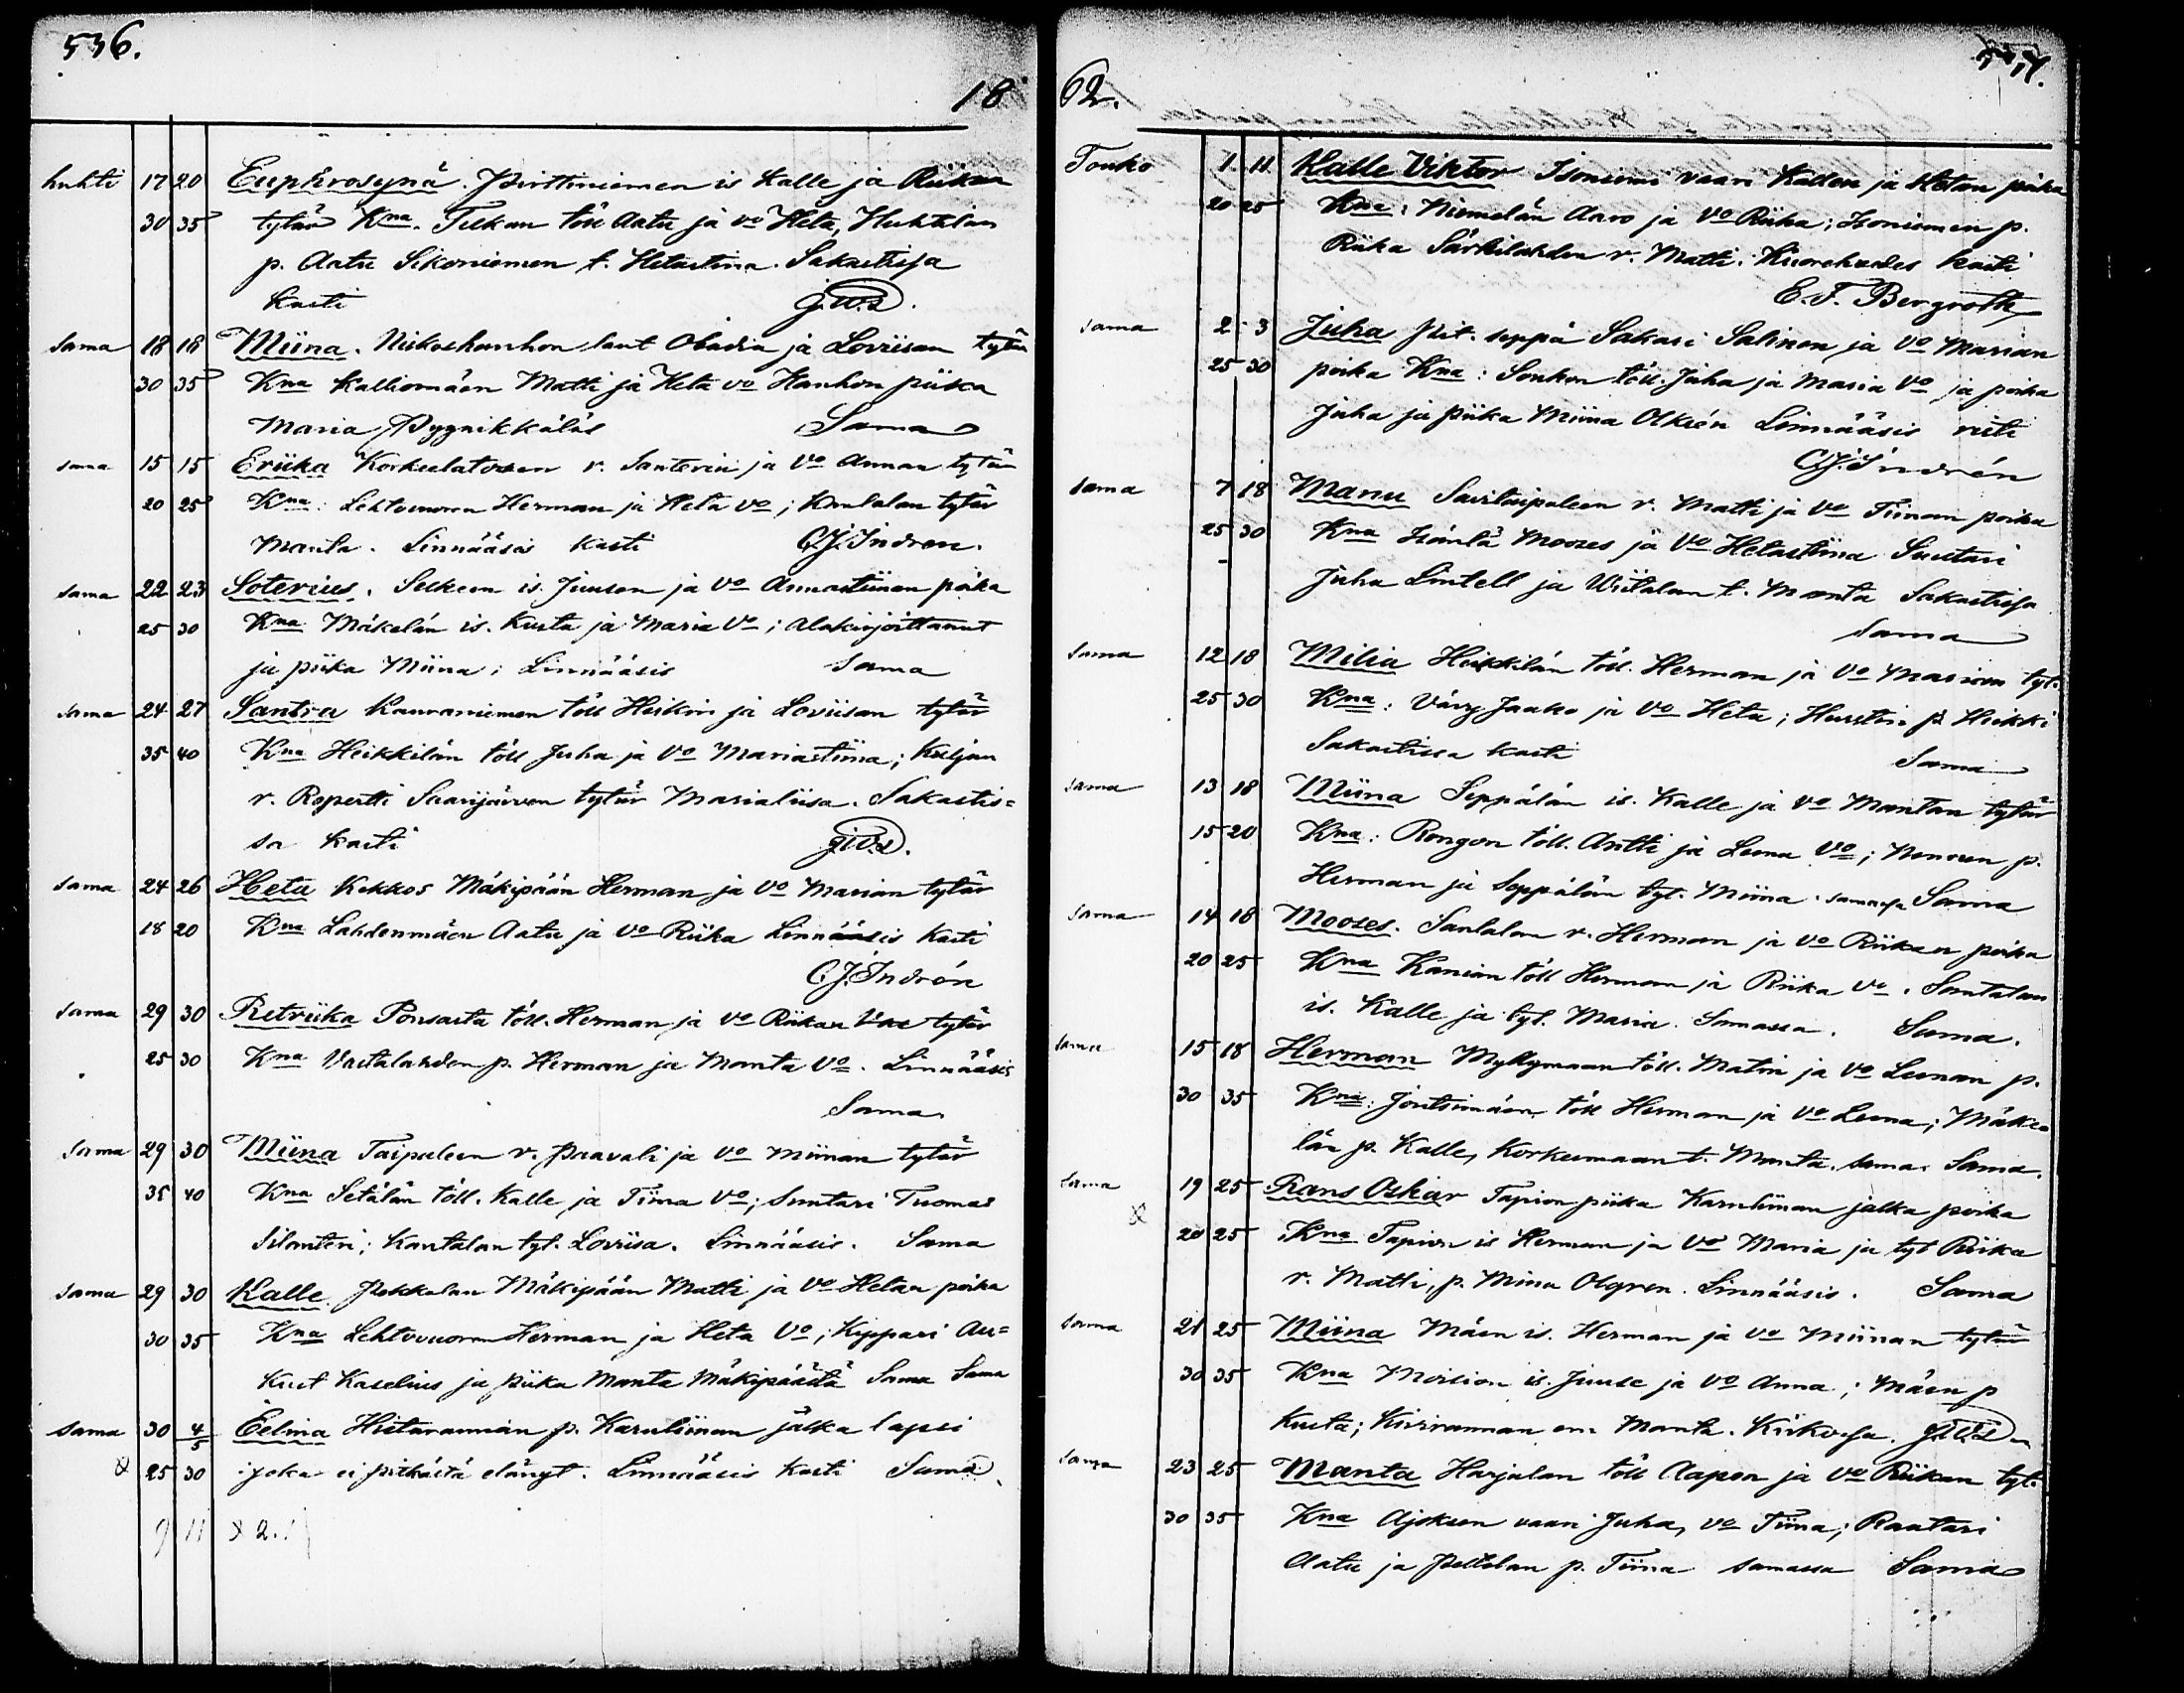 536.
18
huhti 17 20 Euphrosynä. Pirttiniemen is Kalle ja Riikan
30 35 tytär Kna. Tilkan töll Aatu ja vo Heta, Huhtalan
p. Aatu Sikoniemen t. Hetastina. Sakastissa
kasti
Sama 18 18 Miina. Niskoskanhon laut Obadia ja Loviisan tytär
30 35 Kna Kalliomäen Matti ja Heta vo Hanhon piika
Maria Pyynikkäläs Sama
sama 15 15 Eriika Korkealatvosen r. Santerin ja Vo Annan tytär
20 25 Kna: Lehtovuoren Herman ja Heta vo; Kantalan tytär
Manta. Linnääsis kasti C.J. Indrén.
sama 22 23 Soterius. Selkeen is. Juusen ja Vo Annastiinan poika
25 30 Kna Mäkelän is. Kusta ja Maria Vo; Alakirjoittanut
ja piika Miina; Linnääsis Sama
sama 24 27 Santra Kauraniemen töll Heikin ja Loviisan tytär
35 40 Kna Heikkilän töll Juha ja Vo Mariastiina; Kuljun
r. Ropertti Saarijärven tytär Marialiisa. Sakastis=
sa kasti
sama 24 26 Heta Kekkos Mäkipään Herman ja Vo Marian tytär
18 20 Kna Lahdenmäen Aatu ja Vo Riika Linnääsis kasti
C.J. Indrén
sama 29 30 Retriika Ponsasta töll. Herman ja vo Riikan tytär
25 30 Kna Vastalahden p. Herman ja Manta Vo. Linnääsis
Sama
sama 29 30 Miina Taipaleen r. Paavali ja Vo Miinan tytär
35 40 Kna Setälän töll. Kalle ja Tiina Vo; Suntari Tuomas
Silanteri; Kantalan tyt. Loviisa. Linnääsis. Sama
sama 29 30 Kalle Pekkalan Mäkipään Matti ja Vo Hetan poika
30 35 Kna Lehtovuoren Herman ja Heta Vo; Kippari Au=
kust Kaselius ja piika Manta Mäkipäästä Sama Sama
sama 30 4/5 Eelina Hietarannan p. Karuliinan jälka lapsi
x 25 30 joka ei pitkästä elänyt. Linnääsis kasti Sama
9 11 x 2.
62.
Touko 1 11 Kalle Viktor Isoniemi vaari Kallen ja Hetan poika
20 25 Kna: Niemelän Aaro ja Vo Riika; Isoniemen p.
Riika Särkilahden r. Matti. Kuorehvedes kasti
E. F. Bergroth
sama 2 3 Juha Pit. seppä Sakari Salinen ja Vo Marian
25 30 poika Kna: Sonkon töll. Juha ja Maria Vo ja poika
Juha ja piika Miina Olkién Linnääsis risti
C.J. Indrén
sama 7 18 Manu Savitaipaleen r. Matti ja Vo Tiinan poika
25 30 Kna Isäntä Mooses ja Vo Hetastiina Suutari
Juha Lintell ja Wiitalan t. Manta Sakastissa
Sama
sama 12 18 Milia Heikkilän töll. Herman ja Vo Marian tyt.
25 30 Kna: Väry Jaako ja Vo Heta; Hurstin p. Heikki
Sakastissa kasti Sama
sama 13 18 Miina Seppälän is. Kalle ja Vo Mantan tytär
15 20 Kna: Rongon töll. Antti ja Leena Vo; Nenosen p.
Herman ja Seppälän tyt. Miina. samassa Sama
sama 14 18 Mooses. Santalan r. Herman ja Vo Riikan poika
20 25 Kna Kanian töll Herman ja Riika Vo. Santalan
is. Kalle ja tyt. Maria. Samassa. Sama.
sama 15 18 Herman Myllymaan töll. Matin ja Vo Leenan p.
30 35 Kna: Jontsimäen töll Herman ja Vo Leena; Mäke=
län p. Kalle, Korkeemaan t. Manta. sama. Sama.
Sama 19 25 Rans Oskar Tapion piika Karuliinan jalka poika
x 20 25 Kna Tapion is Herman ja Vo Maria ja tyt Riika
r. Matti, p. Miina Olgren. Linnääsis. Sama
sama 21 25 Miina Mäen is. Herman ja Vo Miinan tytär
30 35 Kna Moision is. Juuse ja Vo Anna; Mäen p
Kusta; Kivirannan em. Manta. Kirkossa.
sama 23 25 Manta Harjulan töll Aapon ja Vo Riikan tyt.
30 35 Kna Ajoksen vaari Juha, vo Tiina; Raatari
Aatu ja Peltolan p. Tiina samassa Sama